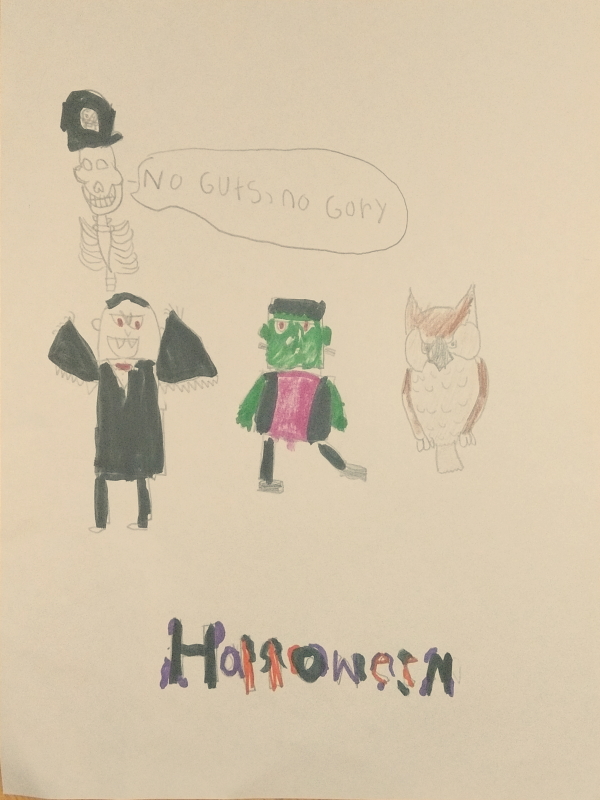 No Guts, no Gory
Halloween